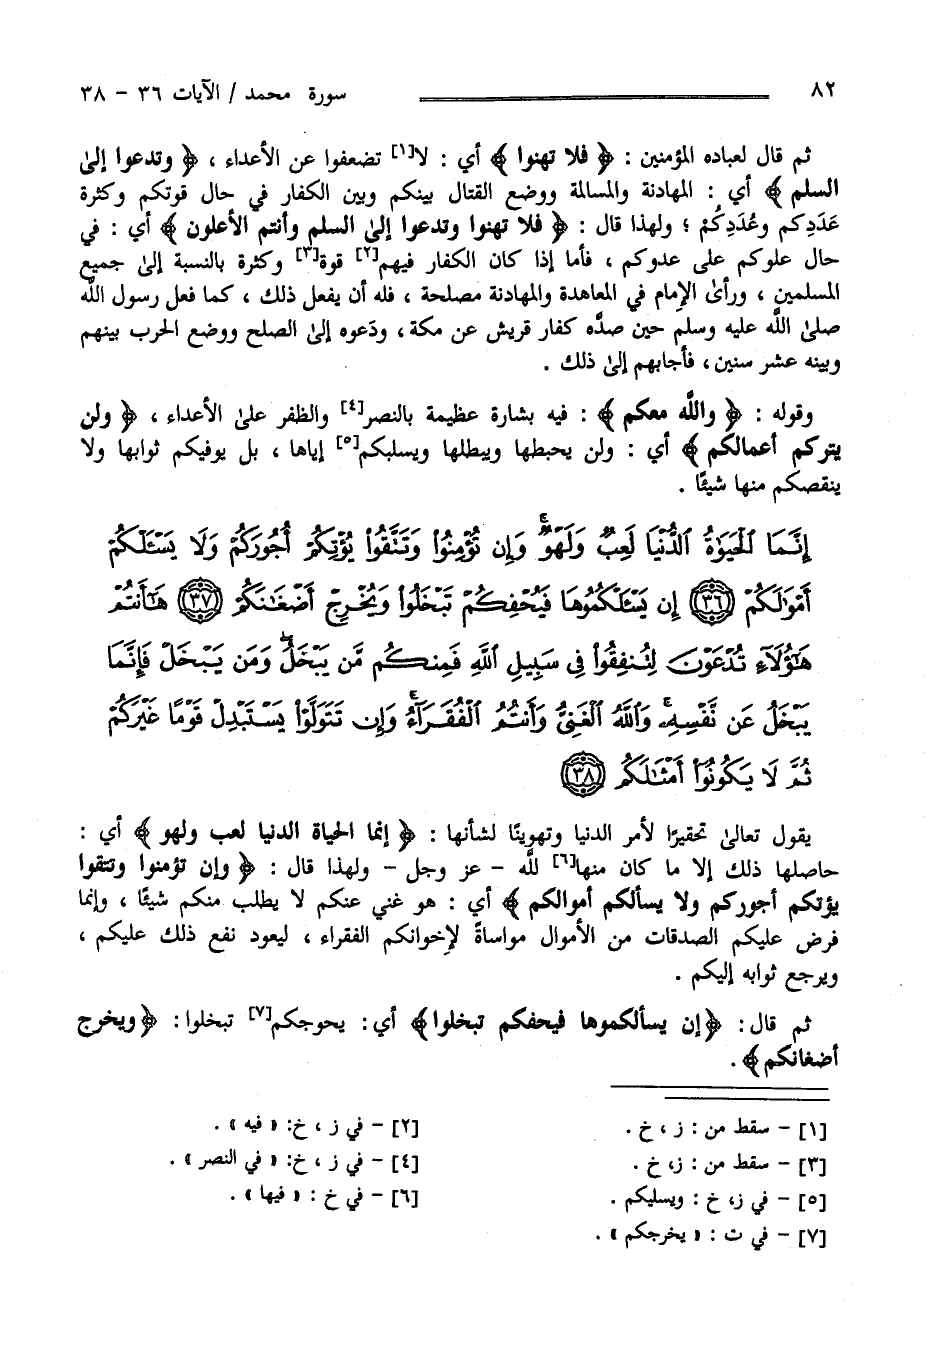 ٨٢ سورة محمد / الآيات ٣٦ - ٣٨
ثم قال لعباده المؤمنين : ﴿ فلا تهنوا ﴾ أي : لا[١] تضعفوا عن الأعداء ، ﴿ وتدعوا إلى
السلم ﴾ أي : المهادنة والمسالمة ووضع القتال بينكم وبين الكفار في حال قوتكم وكثرة
عَدَدِكم وعُدَدِكُمْ ؛ ولهذا قال : ﴿ فلا تهنوا وتدعوا إلى السلم وأنتم الأعلون ﴾ أي : في
حال علوكم على عدوكم ، فأما إذا كان الكفار فيهم[٢] قوة[٣] وكثرة بالنسبة إلى جميع
المسلمين ، ورأى الإمام في المعاهدة والمهادنة مصلحة ، فله أن يفعل ذلك ، كما فعل رسول الله
صلى الله عليه وسلم حين صدَّه كفار قريش عن مكة ، ودَعوه إلى الصلح ووضع الحرب بينهم
وبينه عشر سنين، فأجابهم إلى ذلك .
وقوله : ﴿ والله معكم ﴾ : فيه بشارة عظيمة بالنصر[٤] والظفر على الأعداء ، ﴿ ولن
يتركم أعمالكم ﴾ أي : ولن يحبطها ويبطلها ويسلبكم[٥] إياها ، بل يوفيكم ثوابها ولا
ينقصكم منها شيئًا .
إِنَّمَا ٱلْحَيَوٰةُ ٱلدُّنْيَا لَعِبٌ وَلَهْوٌ ۚ وَإِن تُؤْمِنُوا۟ وَتَتَّقُوا۟ يُؤْتِكُمْ أُجُورَكُمْ وَلَا يَسْـَٔلْكُمْ
أَمْوَٰلَكُمْ ﴿٣٦﴾ إِن يَسْـَٔلْكُمُوهَا فَيُحْفِكُمْ تَبْخَلُوا۟ وَيُخْرِجْ أَضْغَـٰنَكُمْ ﴿٣٧﴾ هَـٰٓأَنتُمْ
هَـٰٓؤُلَآءِ تُدْعَوْنَ لِتُنفِقُوا۟ فِى سَبِيلِ ٱللَّهِ فَمِنكُم مَّن يَبْخَلُ ۖ وَمَن يَبْخَلْ فَإِنَّمَا
يَبْخَلُ عَن نَّفْسِهِۦ ۚ وَٱللَّهُ ٱلْغَنِىُّ وَأَنتُمُ ٱلْفُقَرَآءُ ۚ وَإِن تَتَوَلَّوْا۟ يَسْتَبْدِلْ قَوْمًا غَيْرَكُمْ
ثُمَّ لَا يَكُونُوٓا۟ أَمْثَـٰلَكُم ﴿٣٨﴾
يقول تعالى تحقيرًا لأمر الدنيا وتهوينًا لشأنها : ﴿ إنما الحياة الدنيا لعب ولهو ﴾ أي :
حاصلها ذلك إلا ما كان منها[٦] لله - عز وجل - ولهذا قال : ﴿ وإن تؤمنوا وتتقوا
يؤتكم أجوركم ولا يسألكم أموالكم ﴾ أي : هو غني عنكم لا يطلب منكم شيئًا ، وإنما
فرض عليكم الصدقات من الأموال مواساةً لإخوانكم الفقراء ، ليعود نفع ذلك عليكم ،
ويرجع ثوابه إليكم .
ثم قال: ﴿إن يسألكموها فيحفكم تبخلوا﴾ أي: يحوجكم[٧] تبخلوا: ﴿ويخرج
أضغانكم﴾ .
[١] - سقط من : ز ، خ . [٢] - في ز ، خ: « فيه » .
[٣] - سقط من : ز، خ . [٤] - في ز ، خ: « في النصر » .
[٥] - في ز، خ : ويسليكم . [٦] - في خ : « فيها » .
[٧] - في ت : « يخرجكم » .